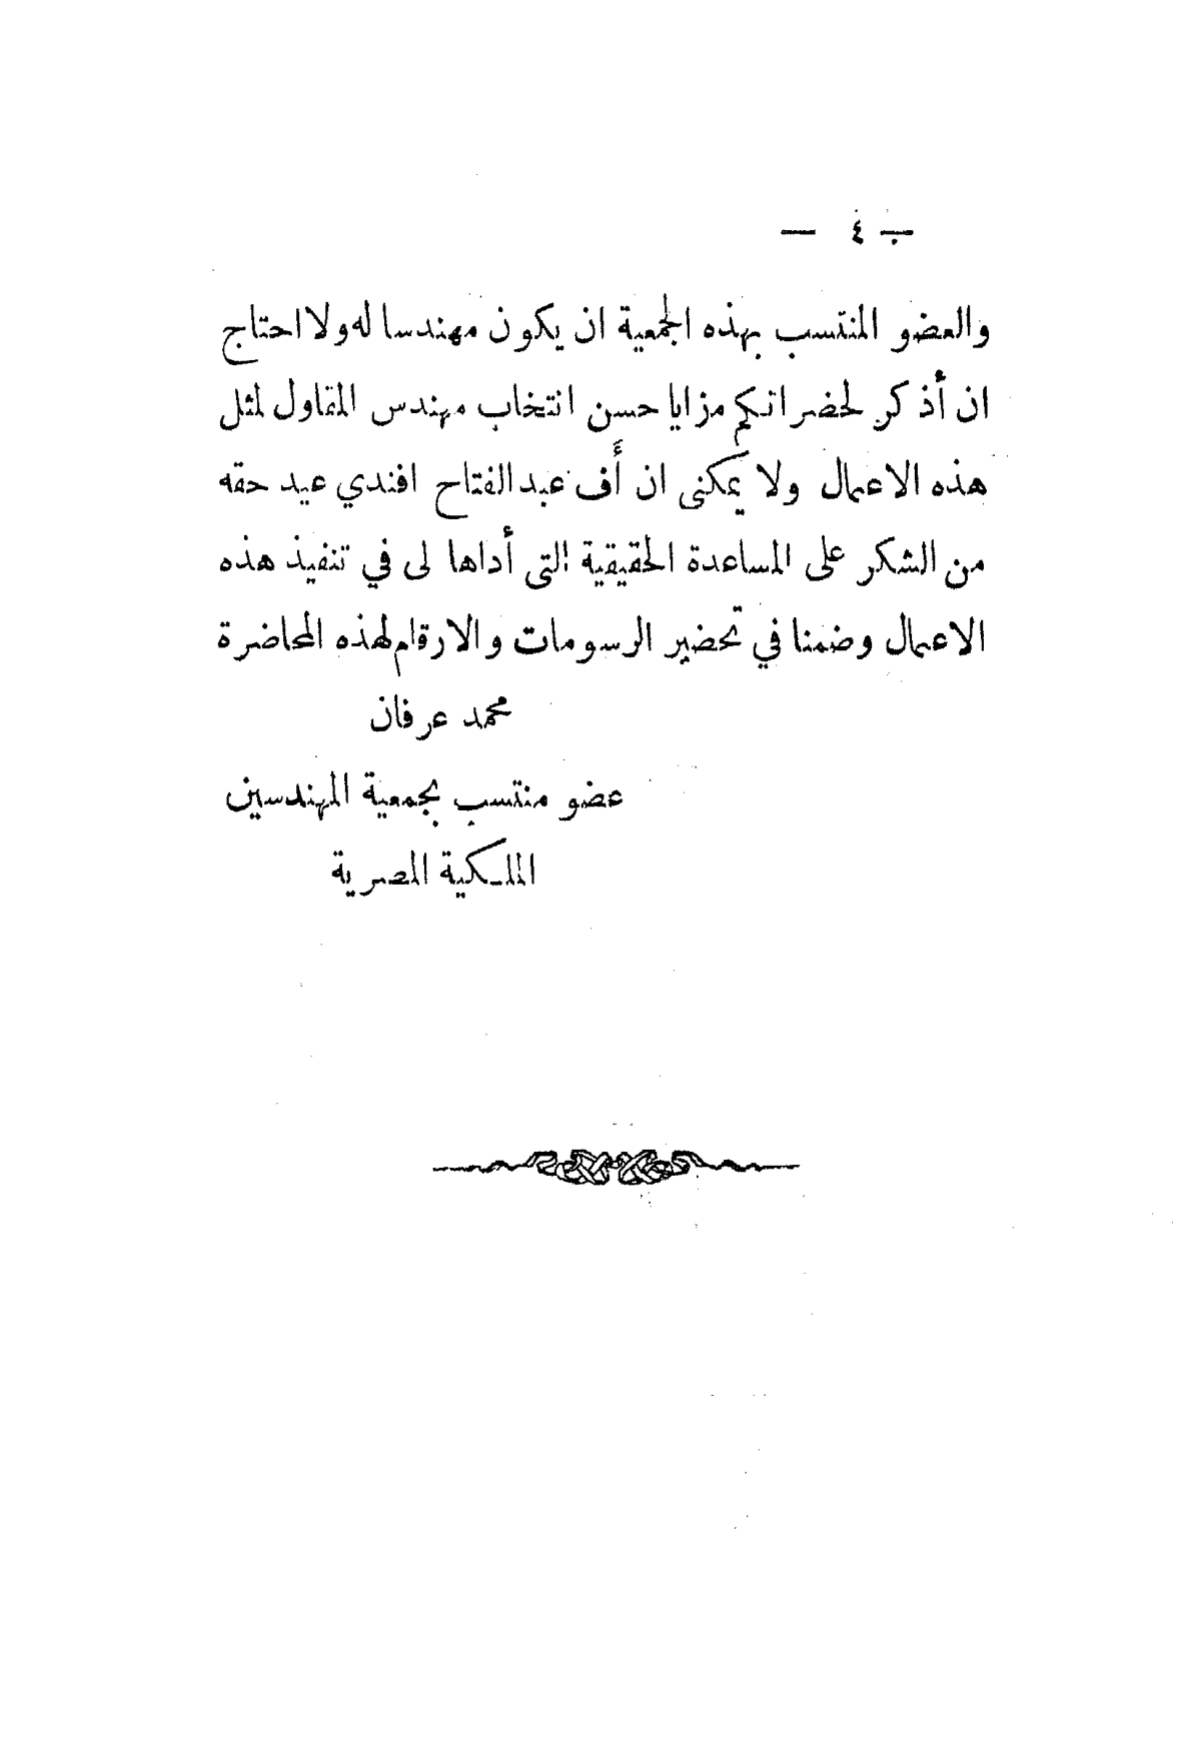 — ٤ —
والعضو المنتسب بهذه الجمعية ان يكون مهندسا له ولا احتاج
ان أذكر لحضراتكم مزايا حسن انتخاب مهندس المقاول لمثل
هذه الاعمال ولا يمكنى ان أَف عبد الفتاح افندي عيد حقه
من الشكر على المساعدة الحقيقية التى أداها لى في تنفيذ هذه
الاعمال وضمنا في تحضير الرسومات والارقام لهذه المحاضرة
محمد عرفان
عضو منتسب بجمعية المهندسين
الملكية المصرية